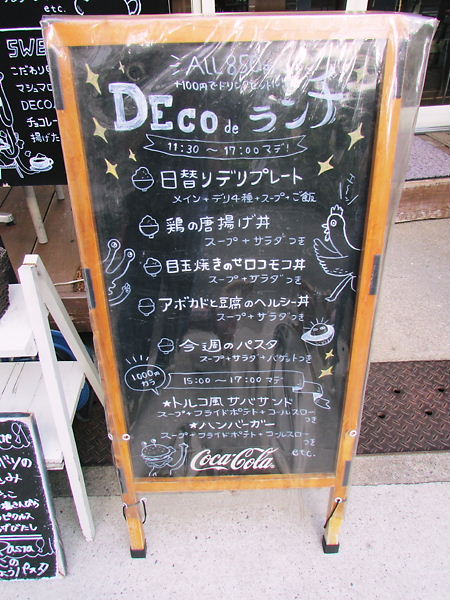 etc.
ALL 850
+100円でドリンクセット
DECO de ランチ
11:30 〜 17:00 マデ!
日替りデリプレート
メイン+デリ4種+スープ+ご飯
鶏の唐揚げ丼
スープ+サラダつき
目玉焼きのせロコモコ丼
スープ+サラダつき
アボカドと豆腐のヘルシー丼
スープ+サラダつき
今週のパスタ
スープ+サラダ+バゲットつき
1000円
から
15:00 〜 17:00 マデ
★トルコ風サバサンド
スープ+フライドポテト+コールスローつき
★ハンバーガー
スープ+フライドポテト+コールスローつき
etc.
Coca-Cola
SWE
こだわり
マシュマロ
DECO
チョコレー
揚げた
ツの
ピクルス
びたし
Pasta
パスタ